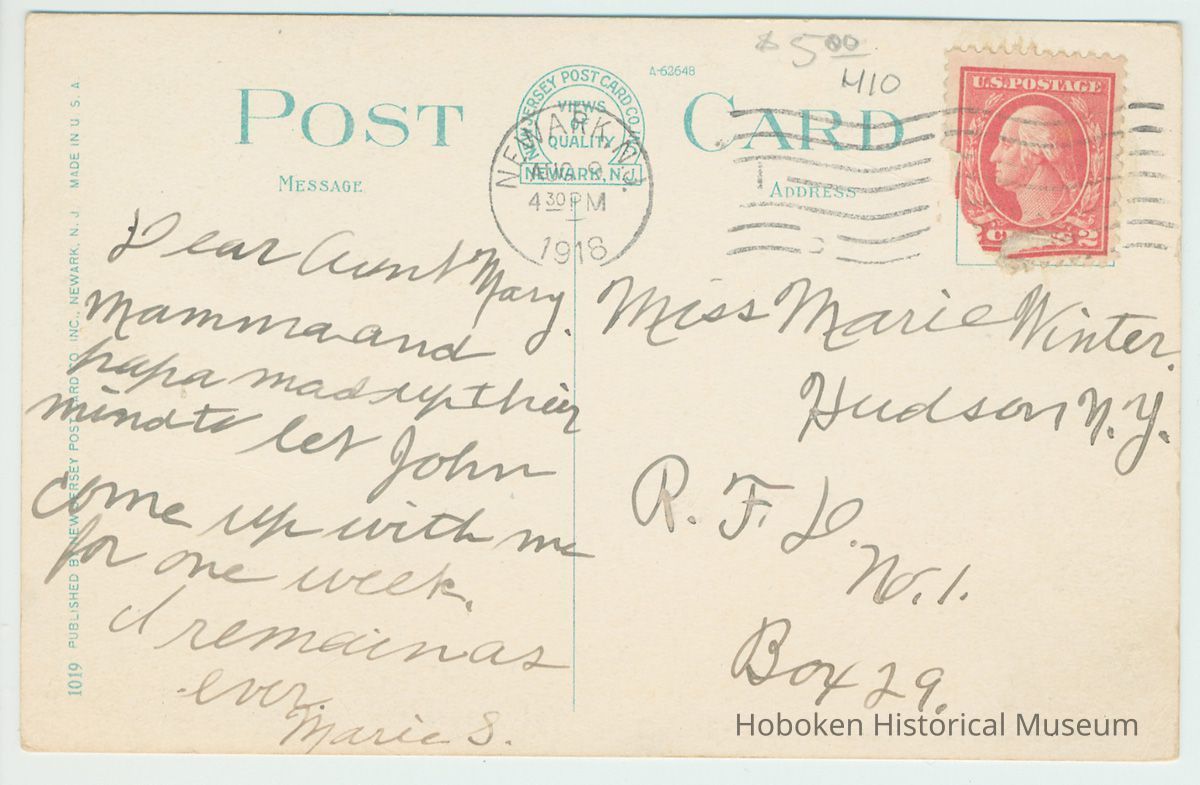 $ 5.00
M10
A-62648
POST CARD
NEW JERSEY POST CARD CO.
VIEWS
OF
QUALITY
NEWARK, N.J.
MESSAGE
ADDRESS
NEWARK, N.J.
AUG 9
4 30 PM
1918
U.S. POSTAGE
CENTS 2
Dear Aunt Mary.
Mamma and
papa mad up their
mind to let John
come up with me
for one week.
I remain as
ever
Marie S.
Miss Marie Winter.
Hudson N.Y.
R. F. D.
No. 1.
Box 29.
1019 PUBLISHED BY NEW JERSEY POST CARD CO INC., NEWARK, N. J. MADE IN U. S. A.
Hoboken Historical Museum